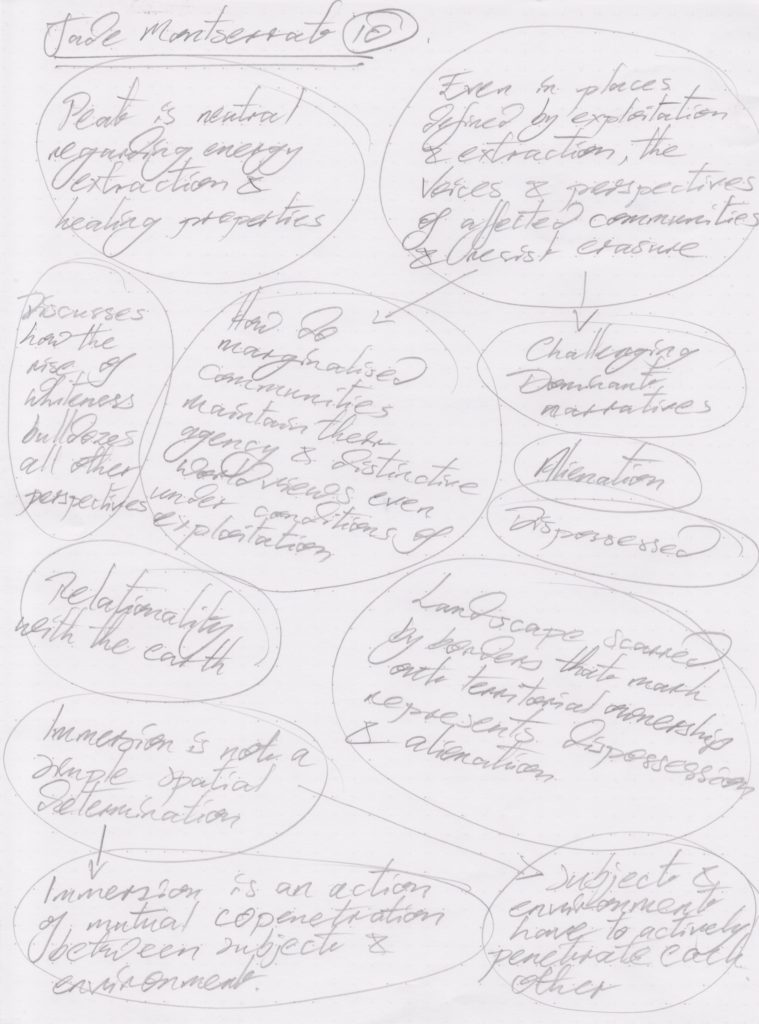 Jade Montserrat 10
Peat is neutral
regarding energy
extraction &
healing properties
Even in places
defined by exploitation
& extraction, the
voices & perspectives
of affected communities
& resist erasure
Discusses
how the
rise of
whiteness
bulldozes
all other
perspectives
How do
marginalised
communities
maintain their
agency & distinctive
worldviews even
under conditions of
exploitation
Challenging
Dominant
narratives
Alienation
Dispossessed
Relationality
with the earth
Landscape scarred
by borders that mark
out territorial ownership
represents dispossession
& alienation
Immersion is not a
simple spatial
determination
Immersion is an action
of mutual copenetration
between subject &
environment.
Subject &
environment
have to actively
penetrate each
other